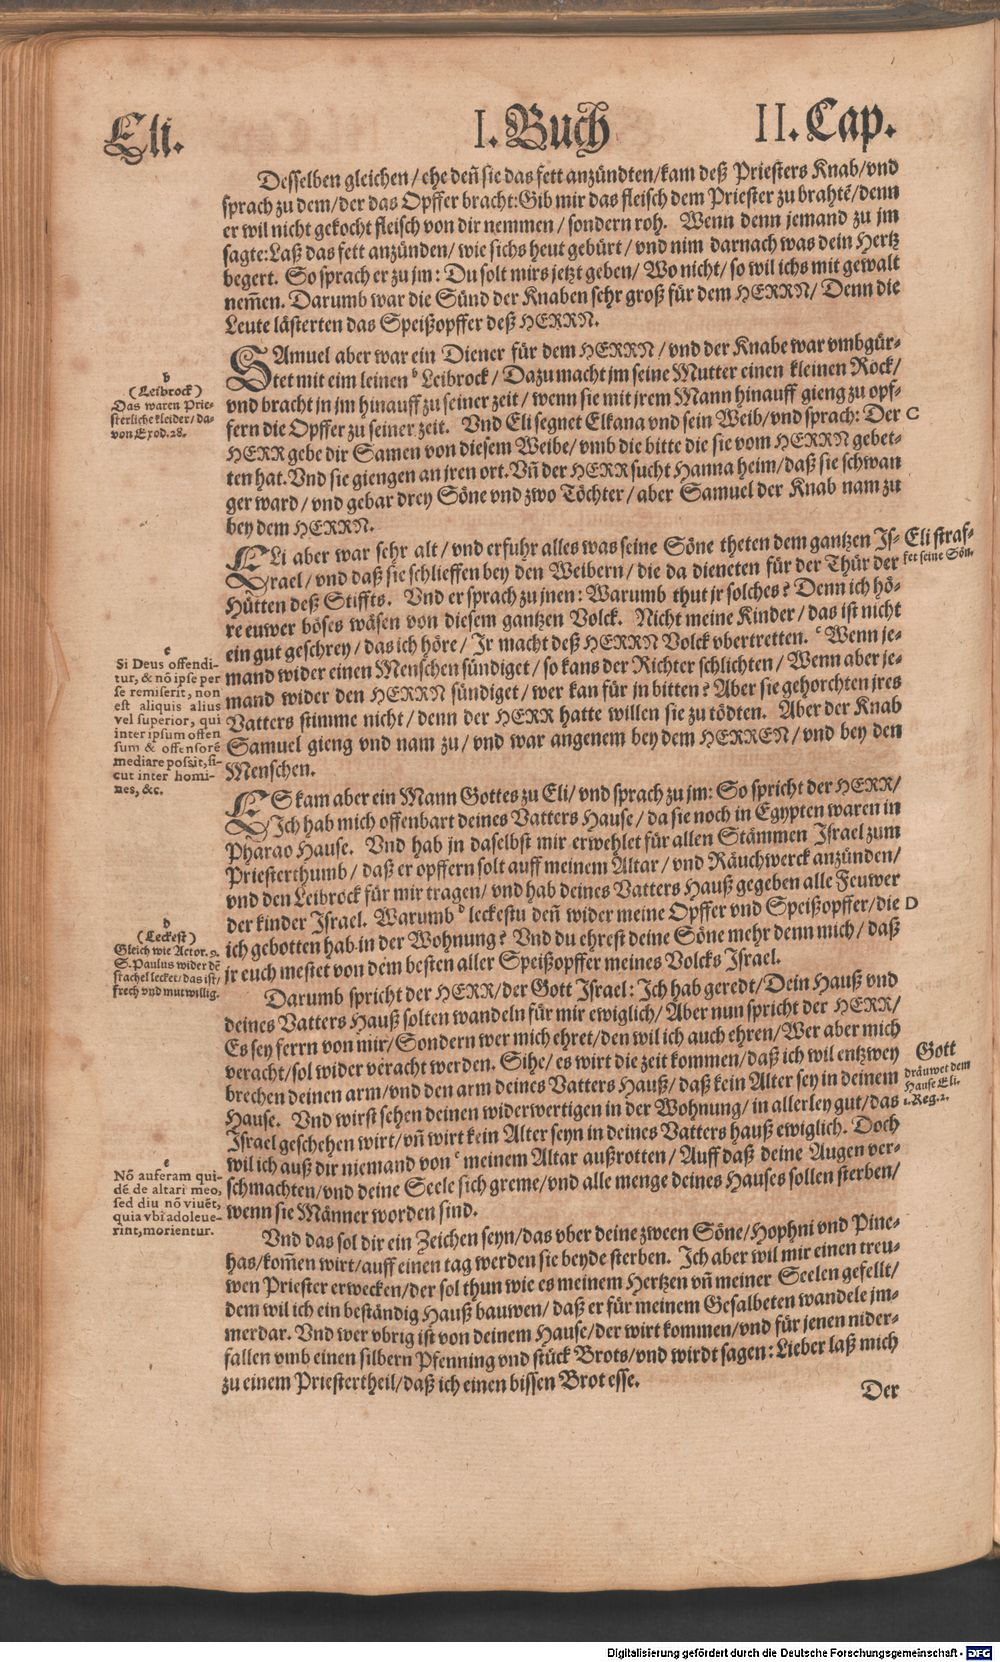 Eli. I. Buch II. Cap.
Desselben gleichen / ehe deñ sie das fett anzündten / kam deß Priesters Knab / vnd
sprach zu dem / der das Opffer bracht: Gib mir das fleisch dem Priester zu brahtẽ / denn
er wil nicht gekocht fleisch von dir nemmen / sondern roh. Wenn denn jemand zu jm
sagte: Laß das fett anzünden / wie sichs heut gebürt / vnd nim darnach was dein Hertz
begert. So sprach er zu jm: Du solt mirs jetzt geben / Wo nicht / so wil ichs mit gewalt
nem̃en. Darumb war die Sünd der Knaben sehr groß für dem HERRN / Denn die
Leute lästerten das Speißopffer deß HERRN.
SAmuel aber war ein Diener für dem HERRN / vnd der Knabe war vmbgür-
tet mit eim leinen b Leibrock / Dazu macht jm seine Mutter einen kleinen Rock /
vnd bracht jn jm hinauff zu seiner zeit / wenn sie mit jrem Mann hinauff gieng zu opf-
fern die Opffer zu seiner zeit. Vnd Eli segnet Elkana vnd sein Weib / vnd sprach: Der C
HERR gebe dir Samen von diesem Weibe / vmb die bitte die sie vom HERRN gebet-
ten hat. Vnd sie giengen an jren ort. Vñ der HERR sucht Hanna heim / daß sie schwan
ger ward / vnd gebar drey Söne vnd zwo Töchter / aber Samuel der Knab nam zu
bey dem HERRN.
b
(Leibrock)
Das waren Prie-
sterliche kleider / da-
von Exod. 28.
ELi aber war sehr alt / vnd erfuhr alles was seine Söne theten dem gantzen Is-
rael / vnd daß sie schlieffen bey den Weibern / die da dieneten für der Thür der
Hütten deß Stiffts. Vnd er sprach zu jnen: Warumb thut jr solches? Denn ich hö-
re euwer böses wäsen von diesem gantzen Volck. Nicht meine Kinder / das ist nicht
ein gut geschrey / das ich höre / Jr macht deß HERRN Volck vbertretten. c Wenn je-
mand wider einen Menschen sündiget / so kans der Richter schlichten / Wenn aber je-
mand wider den HERRN sündiget / wer kan für jn bitten? Aber sie gehorchten jres
Vatters stimme nicht / denn der HERR hatte willen sie zu tödten. Aber der Knab
Samuel gieng vnd nam zu / vnd war angenem bey dem HERREN / vnd bey den
Menschen.
Eli straf-
fet seine Sön.
c
Si Deus offendi-
tur, & nõ ipse per
se remiserit, non
est aliquis alius
vel superior, qui
inter ipsum offen
sum & offensorẽ
mediare possit, si-
cut inter homi-
nes, &c.
ES kam aber ein Mann Gottes zu Eli / vnd sprach zu jm: So spricht der HERR /
Ich hab mich offenbart deines Vatters Hause / da sie noch in Egypten waren in
Pharao Hause. Vnd hab jn daselbst mir erwehlet für allen Stämmen Israel zum
Priesterthumb / daß er opffern solt auff meinem Altar / vnd Räuchwerck anzünden /
vnd den Leibrock für mir tragen / vnd hab deines Vatters Hauß gegeben alle Feuwer
der kinder Israel. Warumb d leckestu deñ wider meine Opffer vnd Speißopffer / die D
ich gebotten hab in der Wohnung? Vnd du ehrest deine Söne mehr denn mich / daß
jr euch mestet von dem besten aller Speißopffer meines Volcks Israel.
d
(Leckest)
Gleich wie Actor. 9.
S. Paulus wider dẽ
stachel lecket / das ist /
frech vnd mutwillig.
Darumb spricht der HERR / der Gott Israel: Ich hab geredt / Dein Hauß vnd
deines Vatters Hauß solten wandeln für mir ewiglich / Aber nun spricht der HERR /
Es sey ferrn von mir / Sondern wer mich ehret / den wil ich auch ehren / Wer aber mich
veracht / sol wider veracht werden. Sihe / es wirt die zeit kommen / daß ich wil entzwey
brechen deinen arm / vnd den arm deines Vatters Hauß / daß kein Alter sey in deinem
Hause. Vnd wirst sehen deinen widerwertigen in der Wohnung / in allerley gut / das
Israel geschehen wirt / vñ wirt kein Alter seyn in deines Vatters hauß ewiglich. Doch
wil ich auß dir niemand von e meinem Altar außrotten / Auff daß deine Augen ver-
schmachten / vnd deine Seele sich greme / vnd alle menge deines Hauses sollen sterben /
wenn sie Männer worden sind.
Gott
dräuwet dem
Hause Eli.
1. Reg. 2.
e
Nõ auferam qui-
dẽ de altari meo,
sed diu nõ viuẽt,
quia vbi adoleue-
rint, morientur.
Vnd das sol dir ein Zeichen seyn / das vber deine zween Söne / Hophni vnd Pine-
has / kom̃en wirt / auff einen tag werden sie beyde sterben. Ich aber wil mir einen treu-
wen Priester erwecken / der sol thun wie es meinem Hertzen vñ meiner Seelen gefellt /
dem wil ich ein beständig Hauß bauwen / daß er für meinem Gesalbeten wandele jm-
merdar. Vnd wer vbrig ist von deinem Hause / der wirt kommen / vnd für jenen nider-
fallen vmb einen silbern Pfenning vnd stück Brots / vnd wirdt sagen: Lieber laß mich
zu einem Priestertheil / daß ich einen bissen Brot esse.
Der
Digitalisierung gefördert durch die Deutsche Forschungsgemeinschaft - DFG